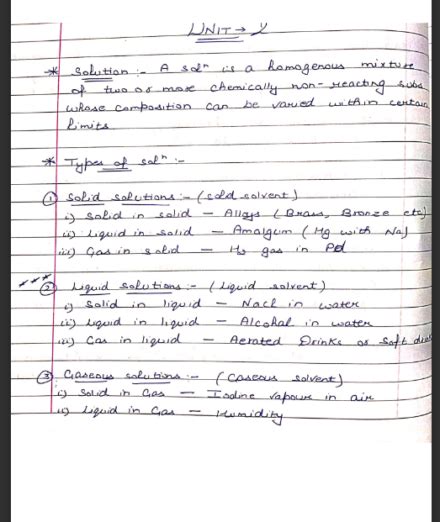 UNIT → 2
* Solution :- A solⁿ is a homogenous mixture
of two or more chemically non-reacting subs
whose composition can be varied within certain
limits
* Types of solⁿ :-
① Solid solutions :- (solid solvent)
i) Solid in solid - Alloys (Brass, Bronze etc)
ii) Liquid in solid - Amalgum (Hg with Na)
iii) Gas in solid - H₂ gas in Pd
② Liquid solutions :- (Liquid solvent)
i) Solid in liquid - Nacl in water
ii) Liquid in liquid - Alcohal in water
iii) Gas in liquid - Aerated Drinks or Soft
③ Gaseous solutions :- (Gaseous solvent)
i) Solid in Gas - Iodine vapour in air
ii) Liquid in Gas - Humidity